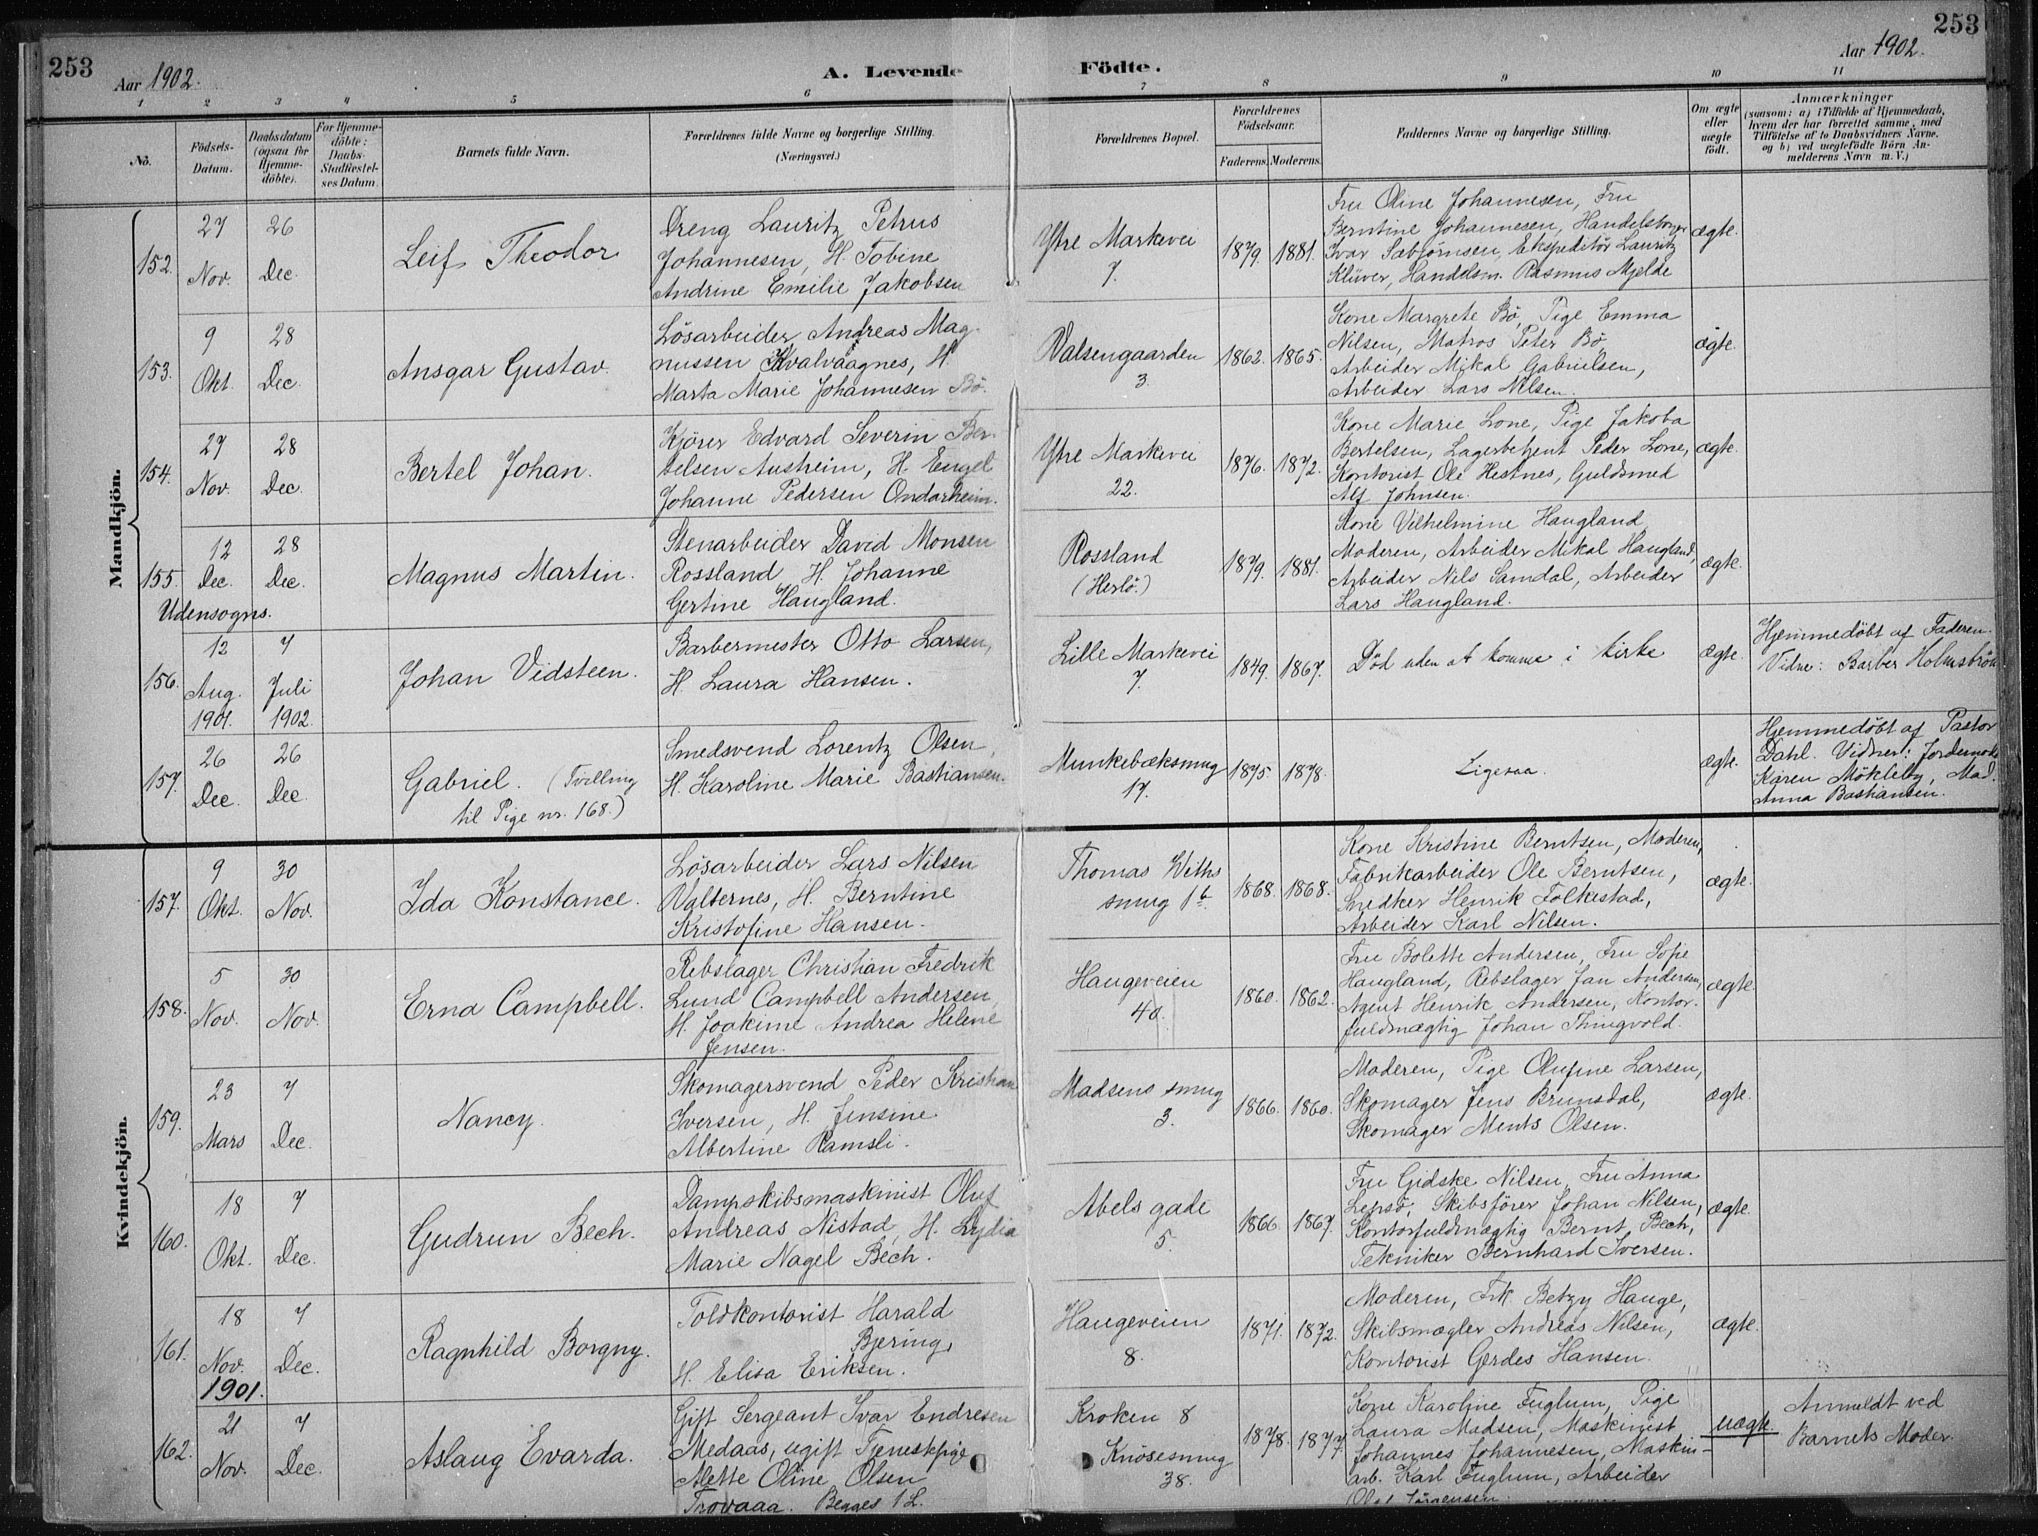 253
Aar 1902.
A. Levende Födte.
Aar 1902.
253
1 2 3 4 5 6 7 8 9 10 11
No.
Födsels-
Datum.
Daabsdatum
(ogsaa for
Hjemme-
döbte).
For Hjemme-
döbte:
Daabs-
Stadfæstel-
ses Datum.
Barnets fulde Navn.
Forældrenes fulde Navne og borgerlige Stilling.
(Næringsvei.)
Forældrenes Bopæl.
Forældrenes
Födselsaar.
Faderens. Moderens.
Faddernes Navne og borgerlige Stilling.
Om ægte
eller
uægte
födt.
Anmærkninger
(saasom: a) i Tilfælde af Hjemmedaab,
hvem der har forrettet samme, med
Tilföielse af to Daabsvidners Navne.
og b) ved uægtefödte Börn An-
melderens Navn m. V.)
Mandkjön.
152.
27
Nov.
26
Dec.
Leif Theodor
Dreng Lauritz Petrus
Johannesen, H. Tobine
Andrine Emilie Jakobsen
Ytre Markevei
7.
1879. 1881.
Fru Oline Johannesen, Fru
Berntine Johannesen,
Ivar Sæbjörnsen, Ekspeditör Lauritz
Klüver, Handelsm. Rasmus Mjelde
ægte.
153.
9
Okt.
28
Dec.
Ansgar Gustav.
Lösarbeider Andreas Mag-
nussen Kvalvaagnes, H.
Marta Marie Johannesen Bö.
Dalsengaarden
3.
1862. 1865.
Kone Margrete Bö, Pige Emma
Nilsen, Matros Peter Bö,
Arbeider Mikal Gabrielsen,
Arbeider Lars Nilsen.
ægte.
154.
27
Nov.
28
Dec.
Bertel Johan.
Kjörer Edvard Severin Ber-
telsen Austreim, H. Engel
Johanne Pedersen Ondarheim.
Ytre Markevei
22.
1876. 1872.
Kone Marie Lone, Pige Jakoba
Bertelsen, Lagerbetjent Peder Lone,
Kontorist Ole Hestnes, Guldsmed
Alf Johnsen.
ægte.
155.
12
Dec.
28
Dec.
Udensogns.
Magnus Martin.
Stenarbeider David Monsen
Rossland, H. Johanne
Gertine Haugland.
Rossland
(Herlö.)
1879. 1881.
Kone Vilhelmine Haugland,
Moderen, Arbeider Mikal Haugland,
Arbeider Nils Samdal, Arbeider
Lars Haugland.
ægte.
156.
12
Aug.
1901.
7
Juli
1902.
Johan Vidsteen.
Barbermester Otto Larsen,
H. Laura Hansen.
Lille Markevei
7.
1849. 1867.
Död uden at komme i kirke
ægte.
Hjemmedöbt af Faderen.
Vidne: Barber Holmström
157.
26
Dec.
26
Dec.
Gabriel. (Tvilling
til Pige nr. 168.)
Smedsvend Lorentz Olsen,
H. Karoline Marie Bastiansen.
Munkebæksmug
17.
1875 1878.
Ligesaa.
ægte.
Hjemmedöbt af Pastor
Dahl. Vidner: Jordemode
Karen Mökleby, Mad.
Anna Bastiansen.
Kvindekjön.
157.
9
Okt.
30
Nov.
Ida Konstance.
Lösarbeider Lars Nilsen
Valternes, H. Berntine
Kristofine Hansen.
Thomas Withs
smug 1b.
1868. 1868.
Kone Kristine Berntsen, Moderen,
Fabrikarbeider Ole Berntsen,
Snedker Henrik Folkestad,
Arbeider Karl Nilsen.
ægte.
158.
5
Nov.
30
Nov.
Erna Campbell.
Rebslager Christian Fredrik
Lund Campbell Andersen,
H. Joakime Andrea Helene
Jensen.
Haugeveien
40.
1860. 1862.
Fru Bolette Andersen, Fru Sofie
Haugland, Rebslager Jan Andersen,
Agent Henrik Andersen, Kontor-
fuldmægtig Johan Thingvold.
ægte.
159.
23
Mars
7
Dec.
Nancy.
Skomagersvend Peder Kristian
Iversen, H. Jensine
Albertine Ramsli.
Madsens smug
3.
1866. 1860.
Moderen, Pige Olufine Larsen,
Skomager Jens Brunsdal,
Skomager Ments Olsen.
ægte.
160.
18
Okt.
7
Dec.
Gudrun Bech.
Dampskibsmaskinist Oluf
Andreas Nistad, H. Lydia
Marie Nagel Bech.
Abels gade
5.
1866. 1867.
Fru Gidske Nilsen, Fru Anna
Lepsö, Skibsförer Johan Nilsen,
Kontorfuldmægtig Bernt Bech,
Tekniker Bernhard Iversen.
ægte.
161.
18
Nov.
1901.
7
Dec.
Ragnhild Borgny.
Toldkontorist Harald
Bjering,
H. Elisa Eriksen.
Haugeveien
8.
1871. 1872.
Moderen, Frk Betzy Hauge,
Skibsmægler Andreas Nilsen,
Kontorist Gerdes Hansen.
ægte.
162.
21
Nov.
7
Dec.
Aslaug Evarda.
Gift Sergeant Ivar Endresen
Medaas, ugift Tjenestepige
Mette Oline Olsen
Trovaaa. Begges 1 L.
Kroken 8
Knösesmug
38.
1878. 1877.
Kone Karoline Fuglum, Pige
Laura Madsen, Maskinist
Johannes Johannesen, Maskin-
arb. Karl Fuglum, Arbeider
Olaf Jörgensen.
uægte.
Anmeldt ved
Barnets Moder.